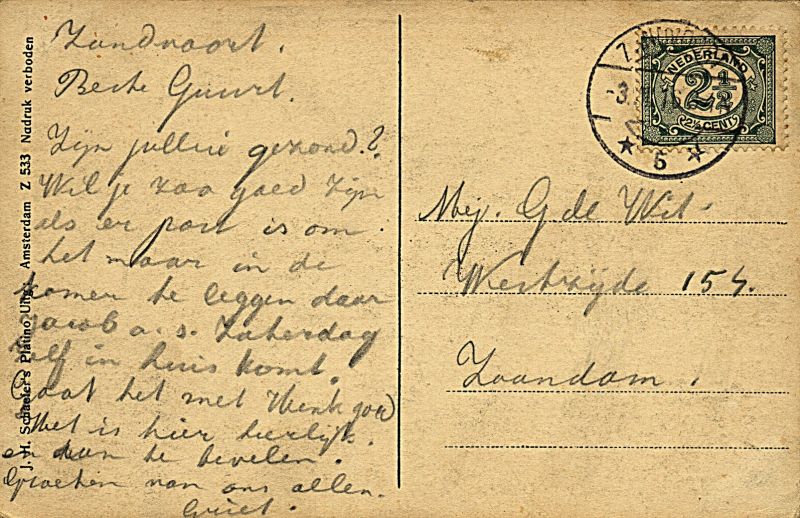 Zandvoort.
Beste Guurt.
Zijn jullie gezond?
Wil je zoo goed zijn
als er post is om
het maar in de
kamer te leggen daar
Jacob a. s. Zaterdag
zelf in huis komt.
Gaat het met Henk goed
Het is hier heerlijk.
en aan te bevelen.
Groeten van ons allen.
Griet.
J. H. Schaefer's Platino Uitg. Amsterdam Z 533 Nadruk verboden
NEDERLAND
2½
2½ CENT
5
Mej. G de Wit.
Westzijde 154.
Zaandam.